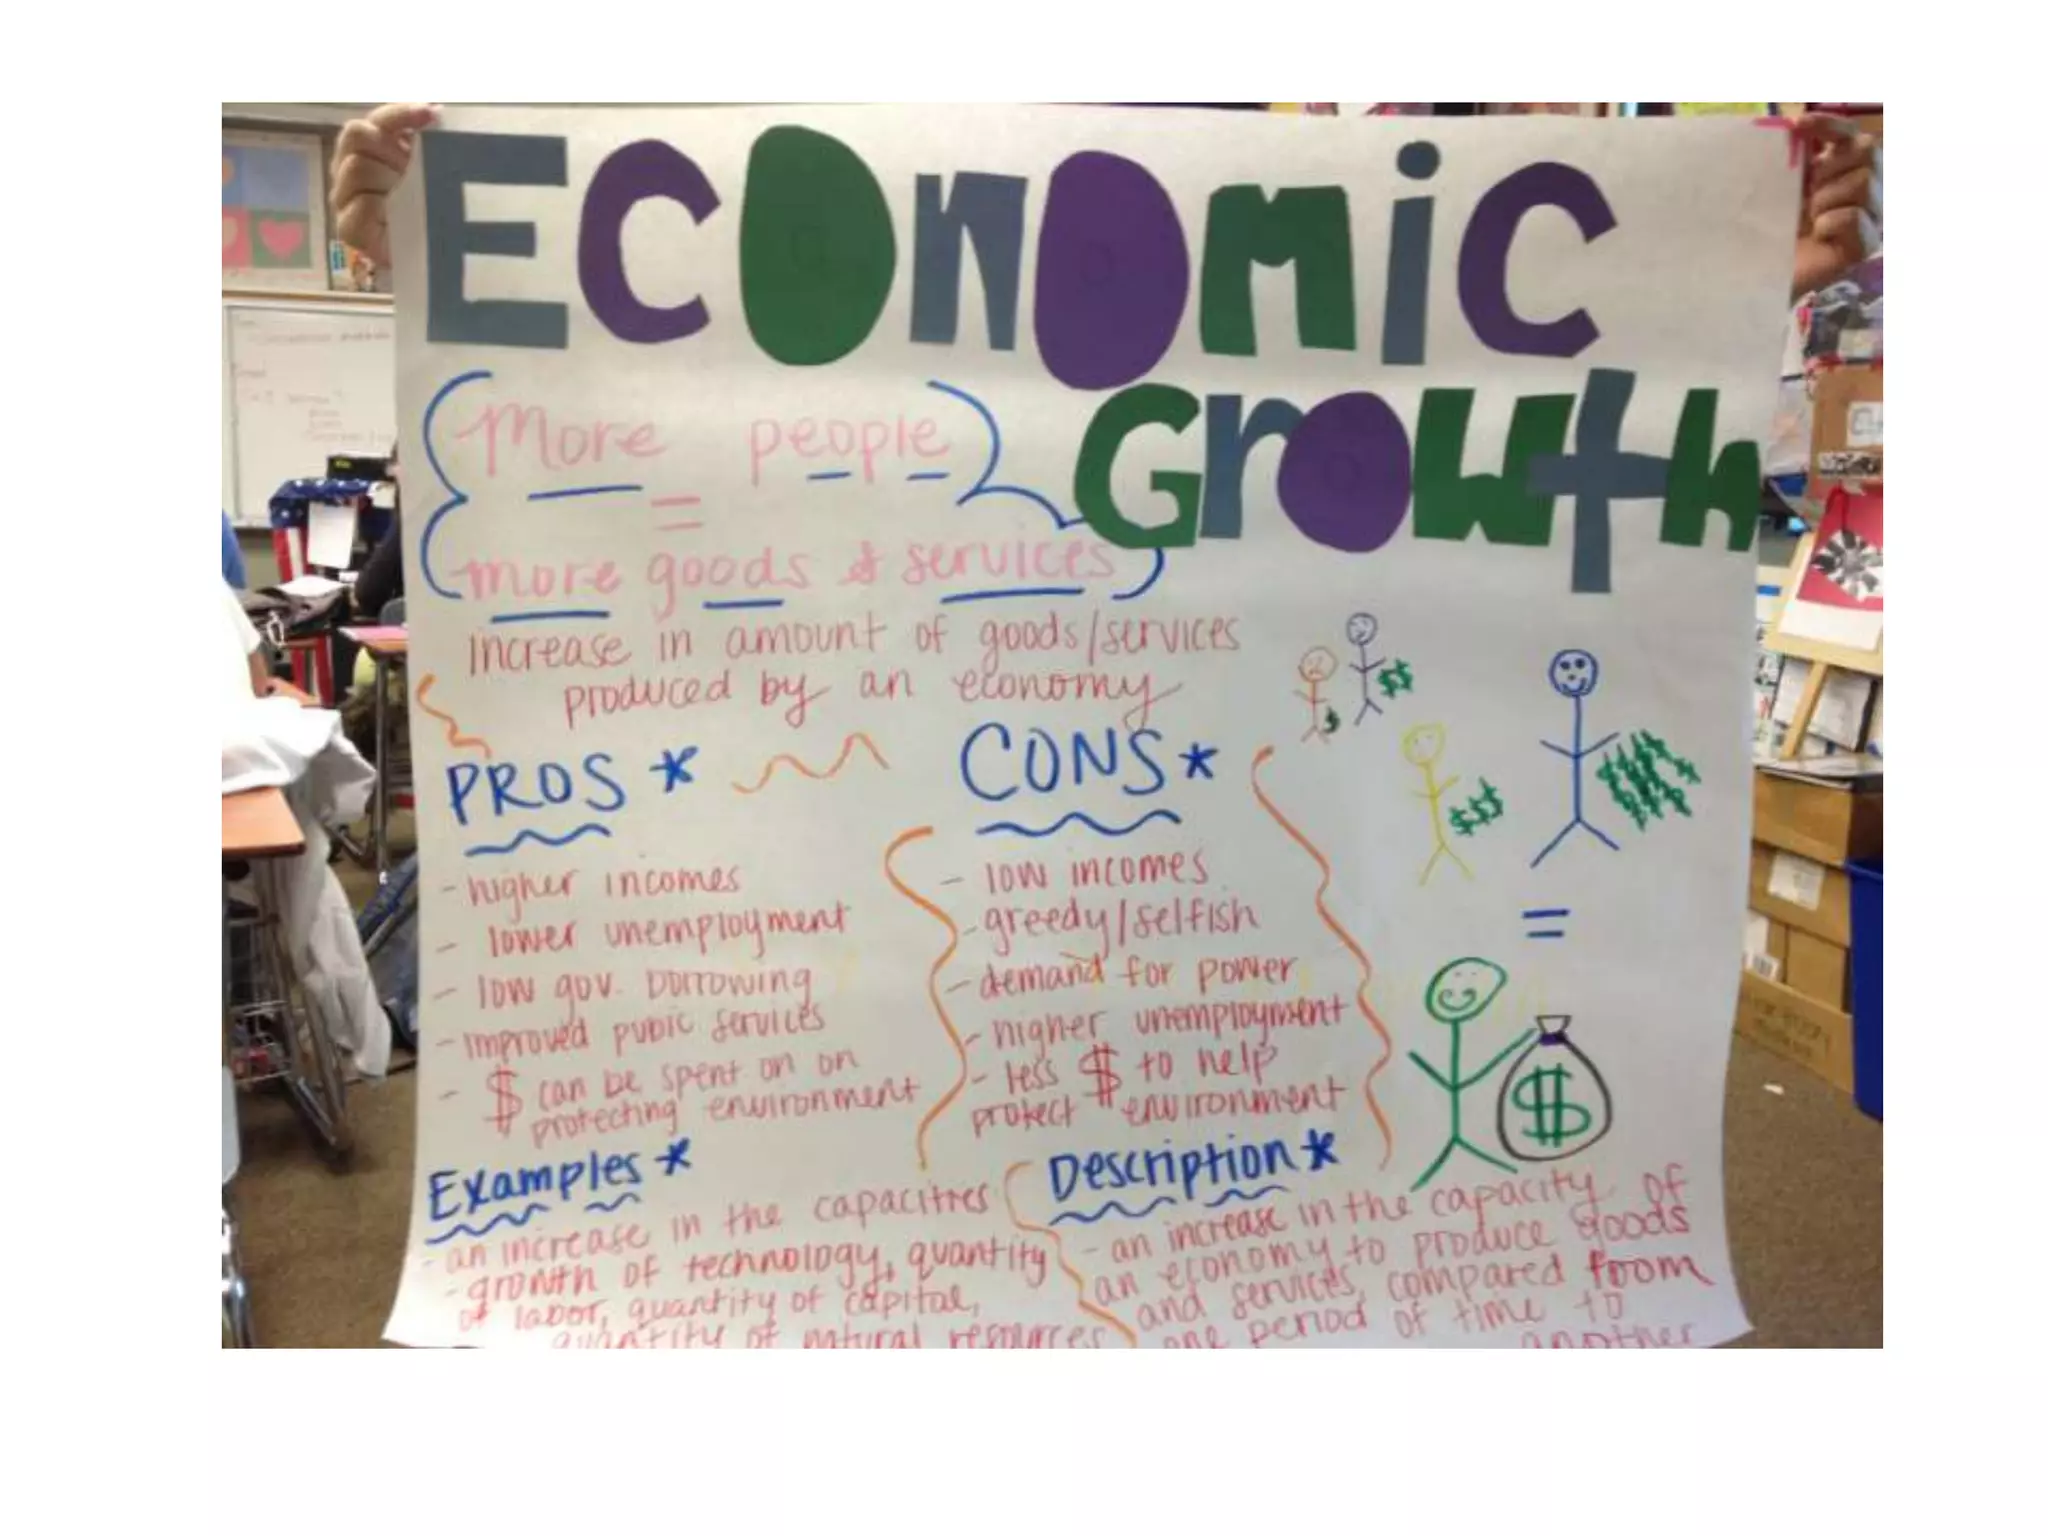 ECOnOMiC
GrOwth
More people
=
more goods & services
increase in amount of goods/services
produced by an economy
PROS *
- higher incomes
- lower unemployment
- low gov. borrowing
- improved pubic services
- $ can be spent on on
protecting environment
CONS *
- low incomes
- greedy/selfish
- demand for power
- higher unemployment
- less $ to help
protect environment
$$
$
$$$
=
$
Examples *
- an increase in the capacitres
- growth of technology, quantity
of labor, quantity of capital,
quantity of natural resources
Description *
- an increase in the capacity of
an economy to produce goods
and services, compared from
one period of time to
another